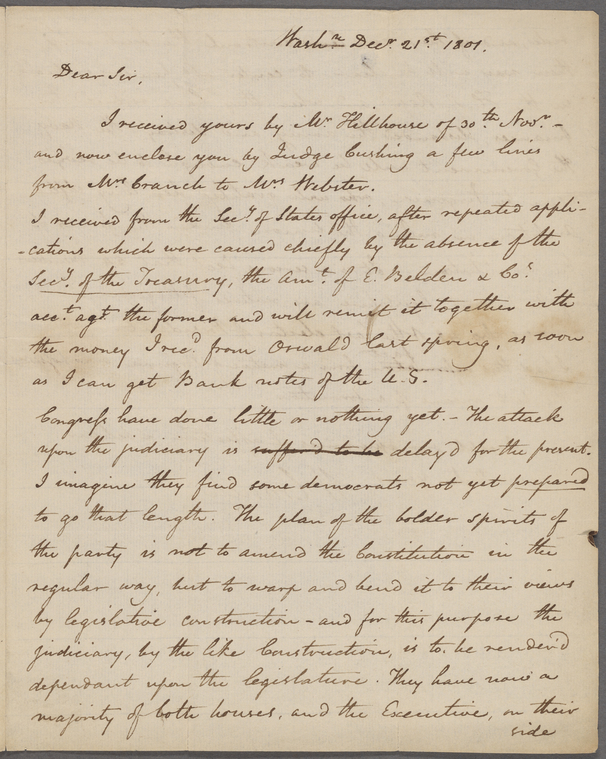 Washn Decr. 21st. 1801.
Dear Sir,
I received yours by Mr Hillhouse of 30th. Novr. –
and now enclose you by Judge Cushing a few lines
from Mrs Cranch to Mrs Webster.
I received from the Secy. of States office, after repeated appli-
-cations which were caused chiefly by the absence of the
Secy. of the Treasury, the amt. of E. Belden & Co's.
acct. agt. the former and will remit it together with
the money I recd. from Oswald last spring, as soon
as I can get Bank notes of the U.S.
Congress have done little or nothing yet. – The attack
upon the judiciary is suffer'd to be delay'd for the present.
I imagine they find some democrats not yet prepared
to go that length. The plan of the bolder spirits of
the party is not to amend the Constitution in the
regular way, but to warp and bend it to their views
by legislative construction – and for this purpose the
judiciary, by the like Construction, is to be render'd
dependant upon the legislature. They have now a
majority of both houses, and the Executive, on their
side